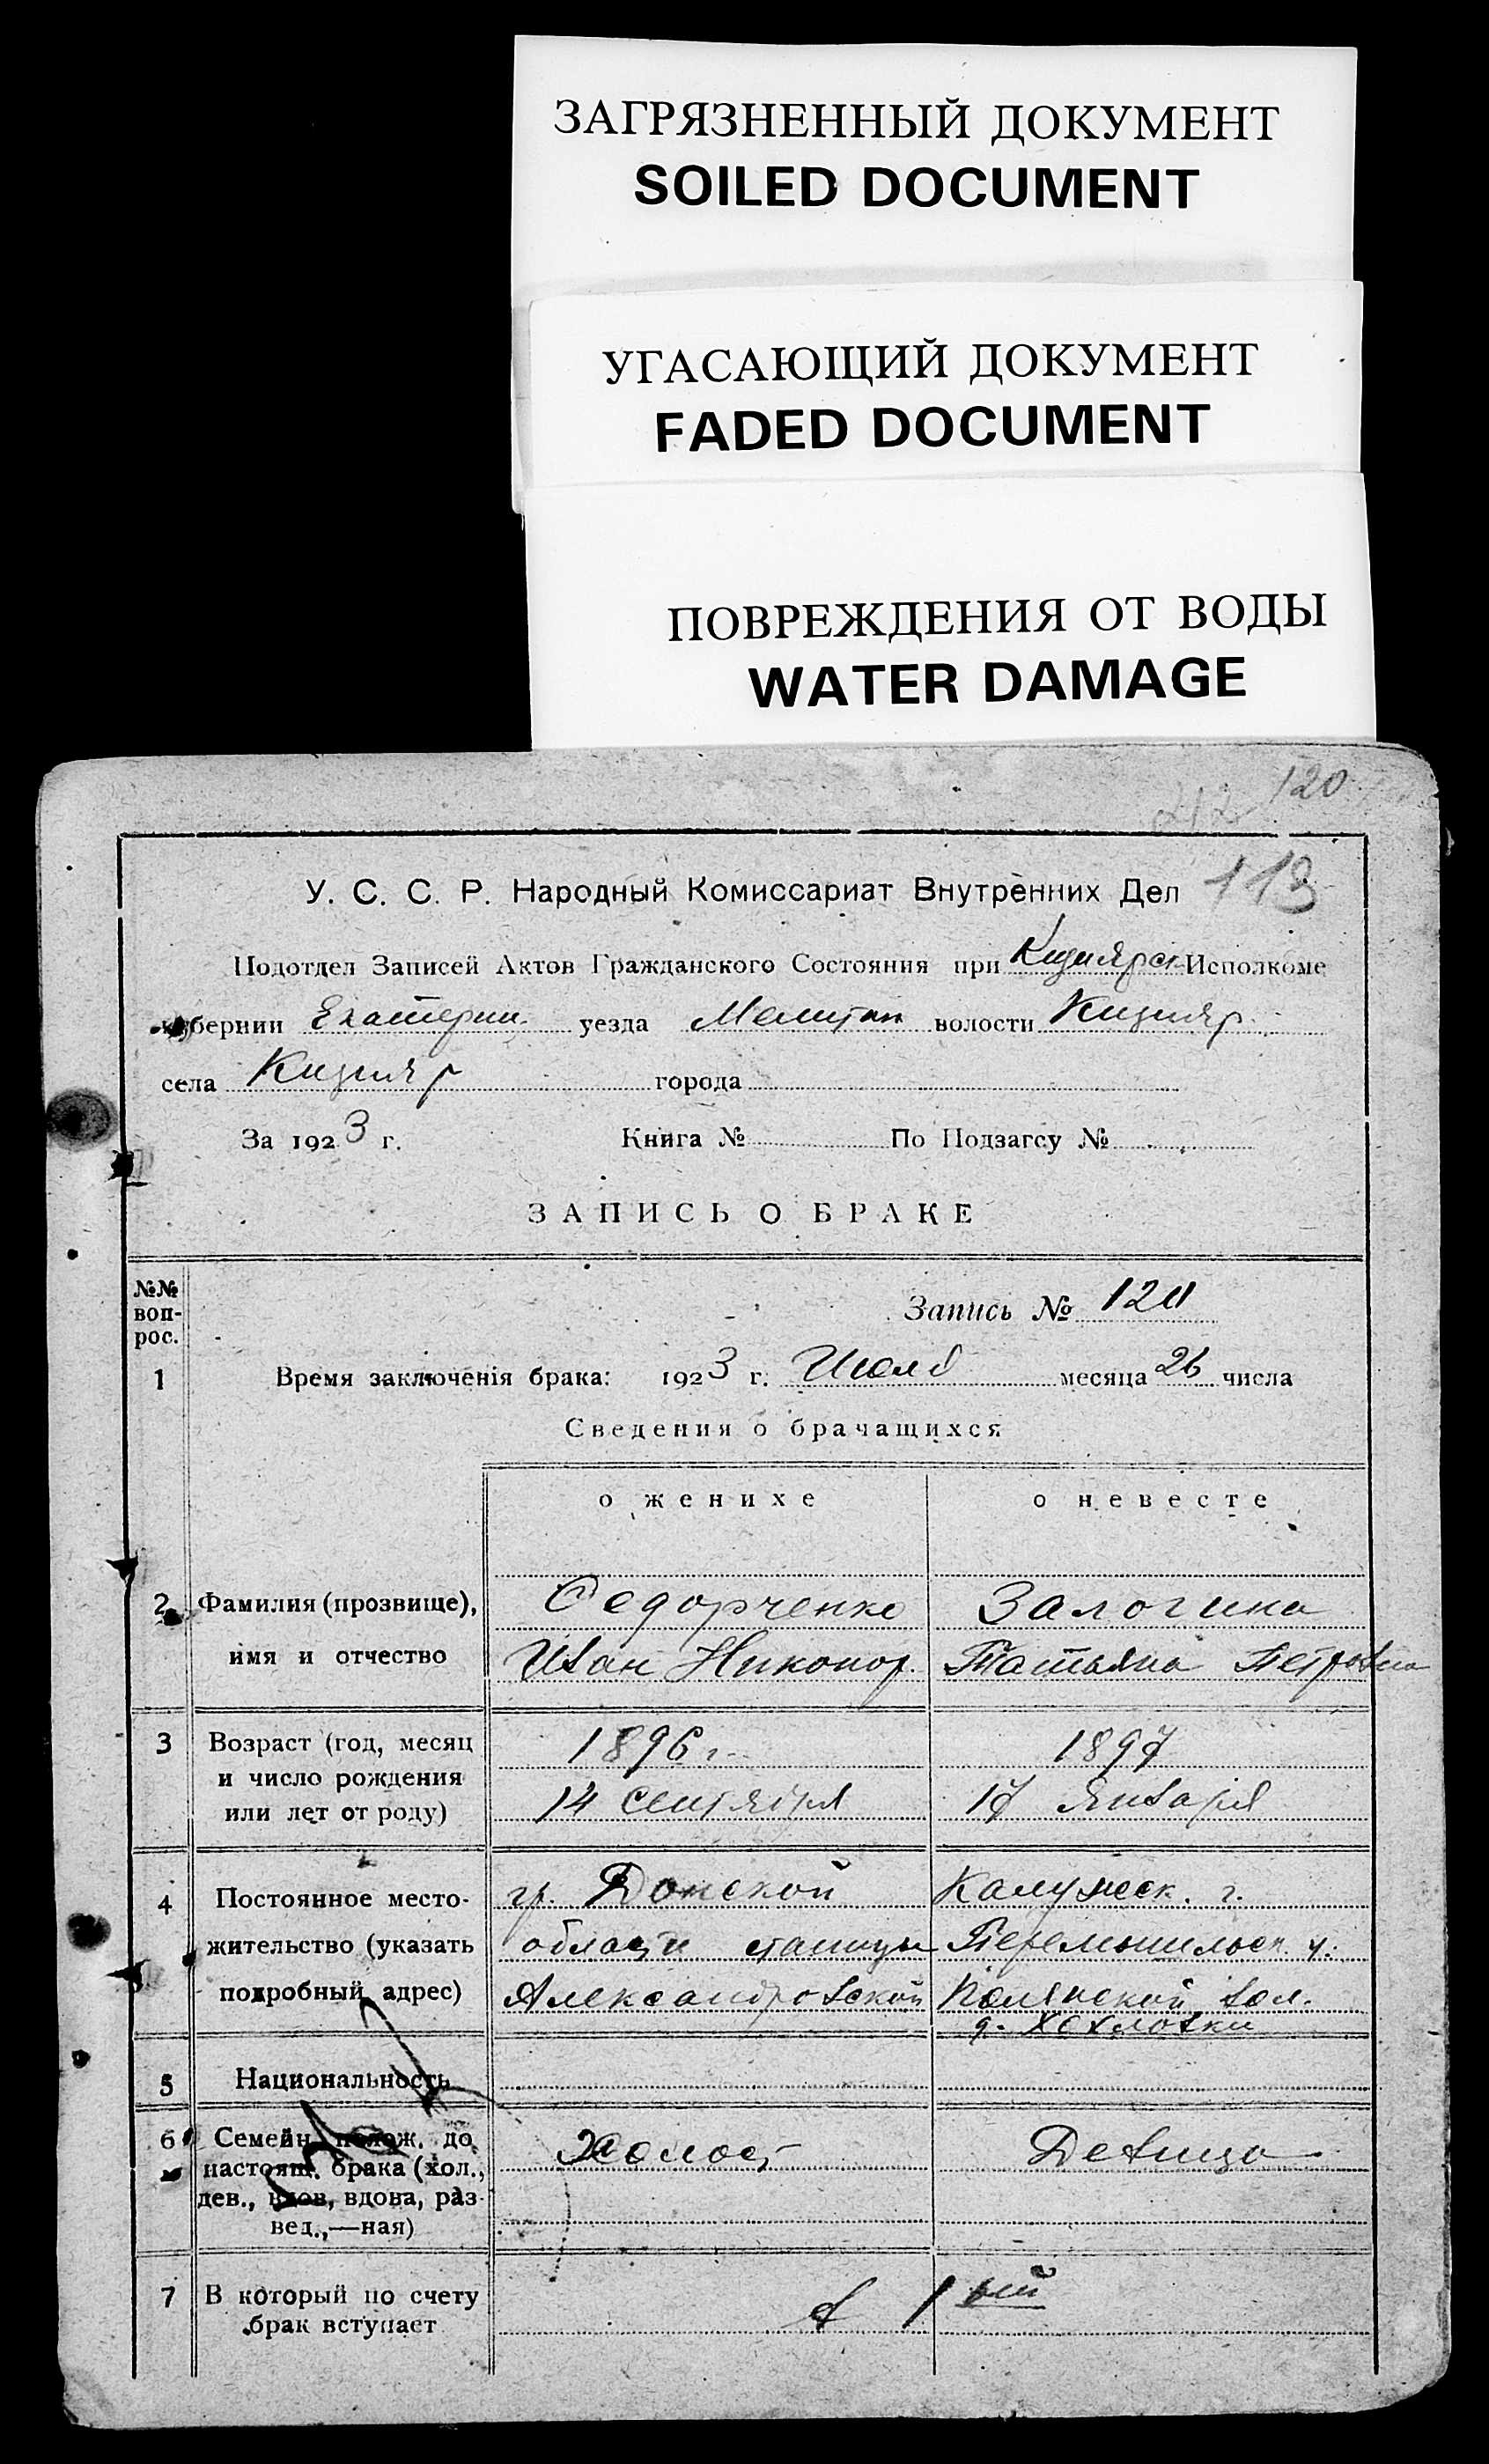 ЗАГРЯЗНЕННЫЙ ДОКУМЕНТ
SOILED DOCUMENT
УГАСАЮЩИЙ ДОКУМЕНТ
FADED DOCUMENT
ПОВРЕЖДЕНИЯ ОТ ВОДЫ
WATER DAMAGE
120
212
113
У. С. С. Р. Народный Комиссариат Внутренних Дел
Подотдел Записей Актов Гражданского Состояния при Кизиярск Исполкоме
губернии Екатерин. уезда Мелитоп волости Кизияр.
села Кизияр города
За 1923 г. Книга № По Подзагсу №
ЗАПИСЬ О БРАКЕ
№№ воп- рос.
Запись №
1 Время заключенія брака: 1923 г. Июля месяца 26 числа
Сведения о брачащихся
о женихе о невесте
2 Фамилия (прозвище), Федорченко Залогина
имя и отчество Иван Никонор. Татьяна Петровна
3 Возраст (год, месяц 1896 г. 1897
и число рождения
или лет от роду) 14 сентября 17 Января
4 Постоянное место- гр. Донской Калужск. г.
жительство (указать области станицы Перемышльск. у.
подробный адрес) Александровской Полянской вол.
д. Хохловки
5 Национальность
6 Семейн. полож. до Холост Девица
настоящ. брака (хол.,
дев., вдов, вдова, раз-
вед.,—ная)
7 В который по счету в 1ый
брак вступает